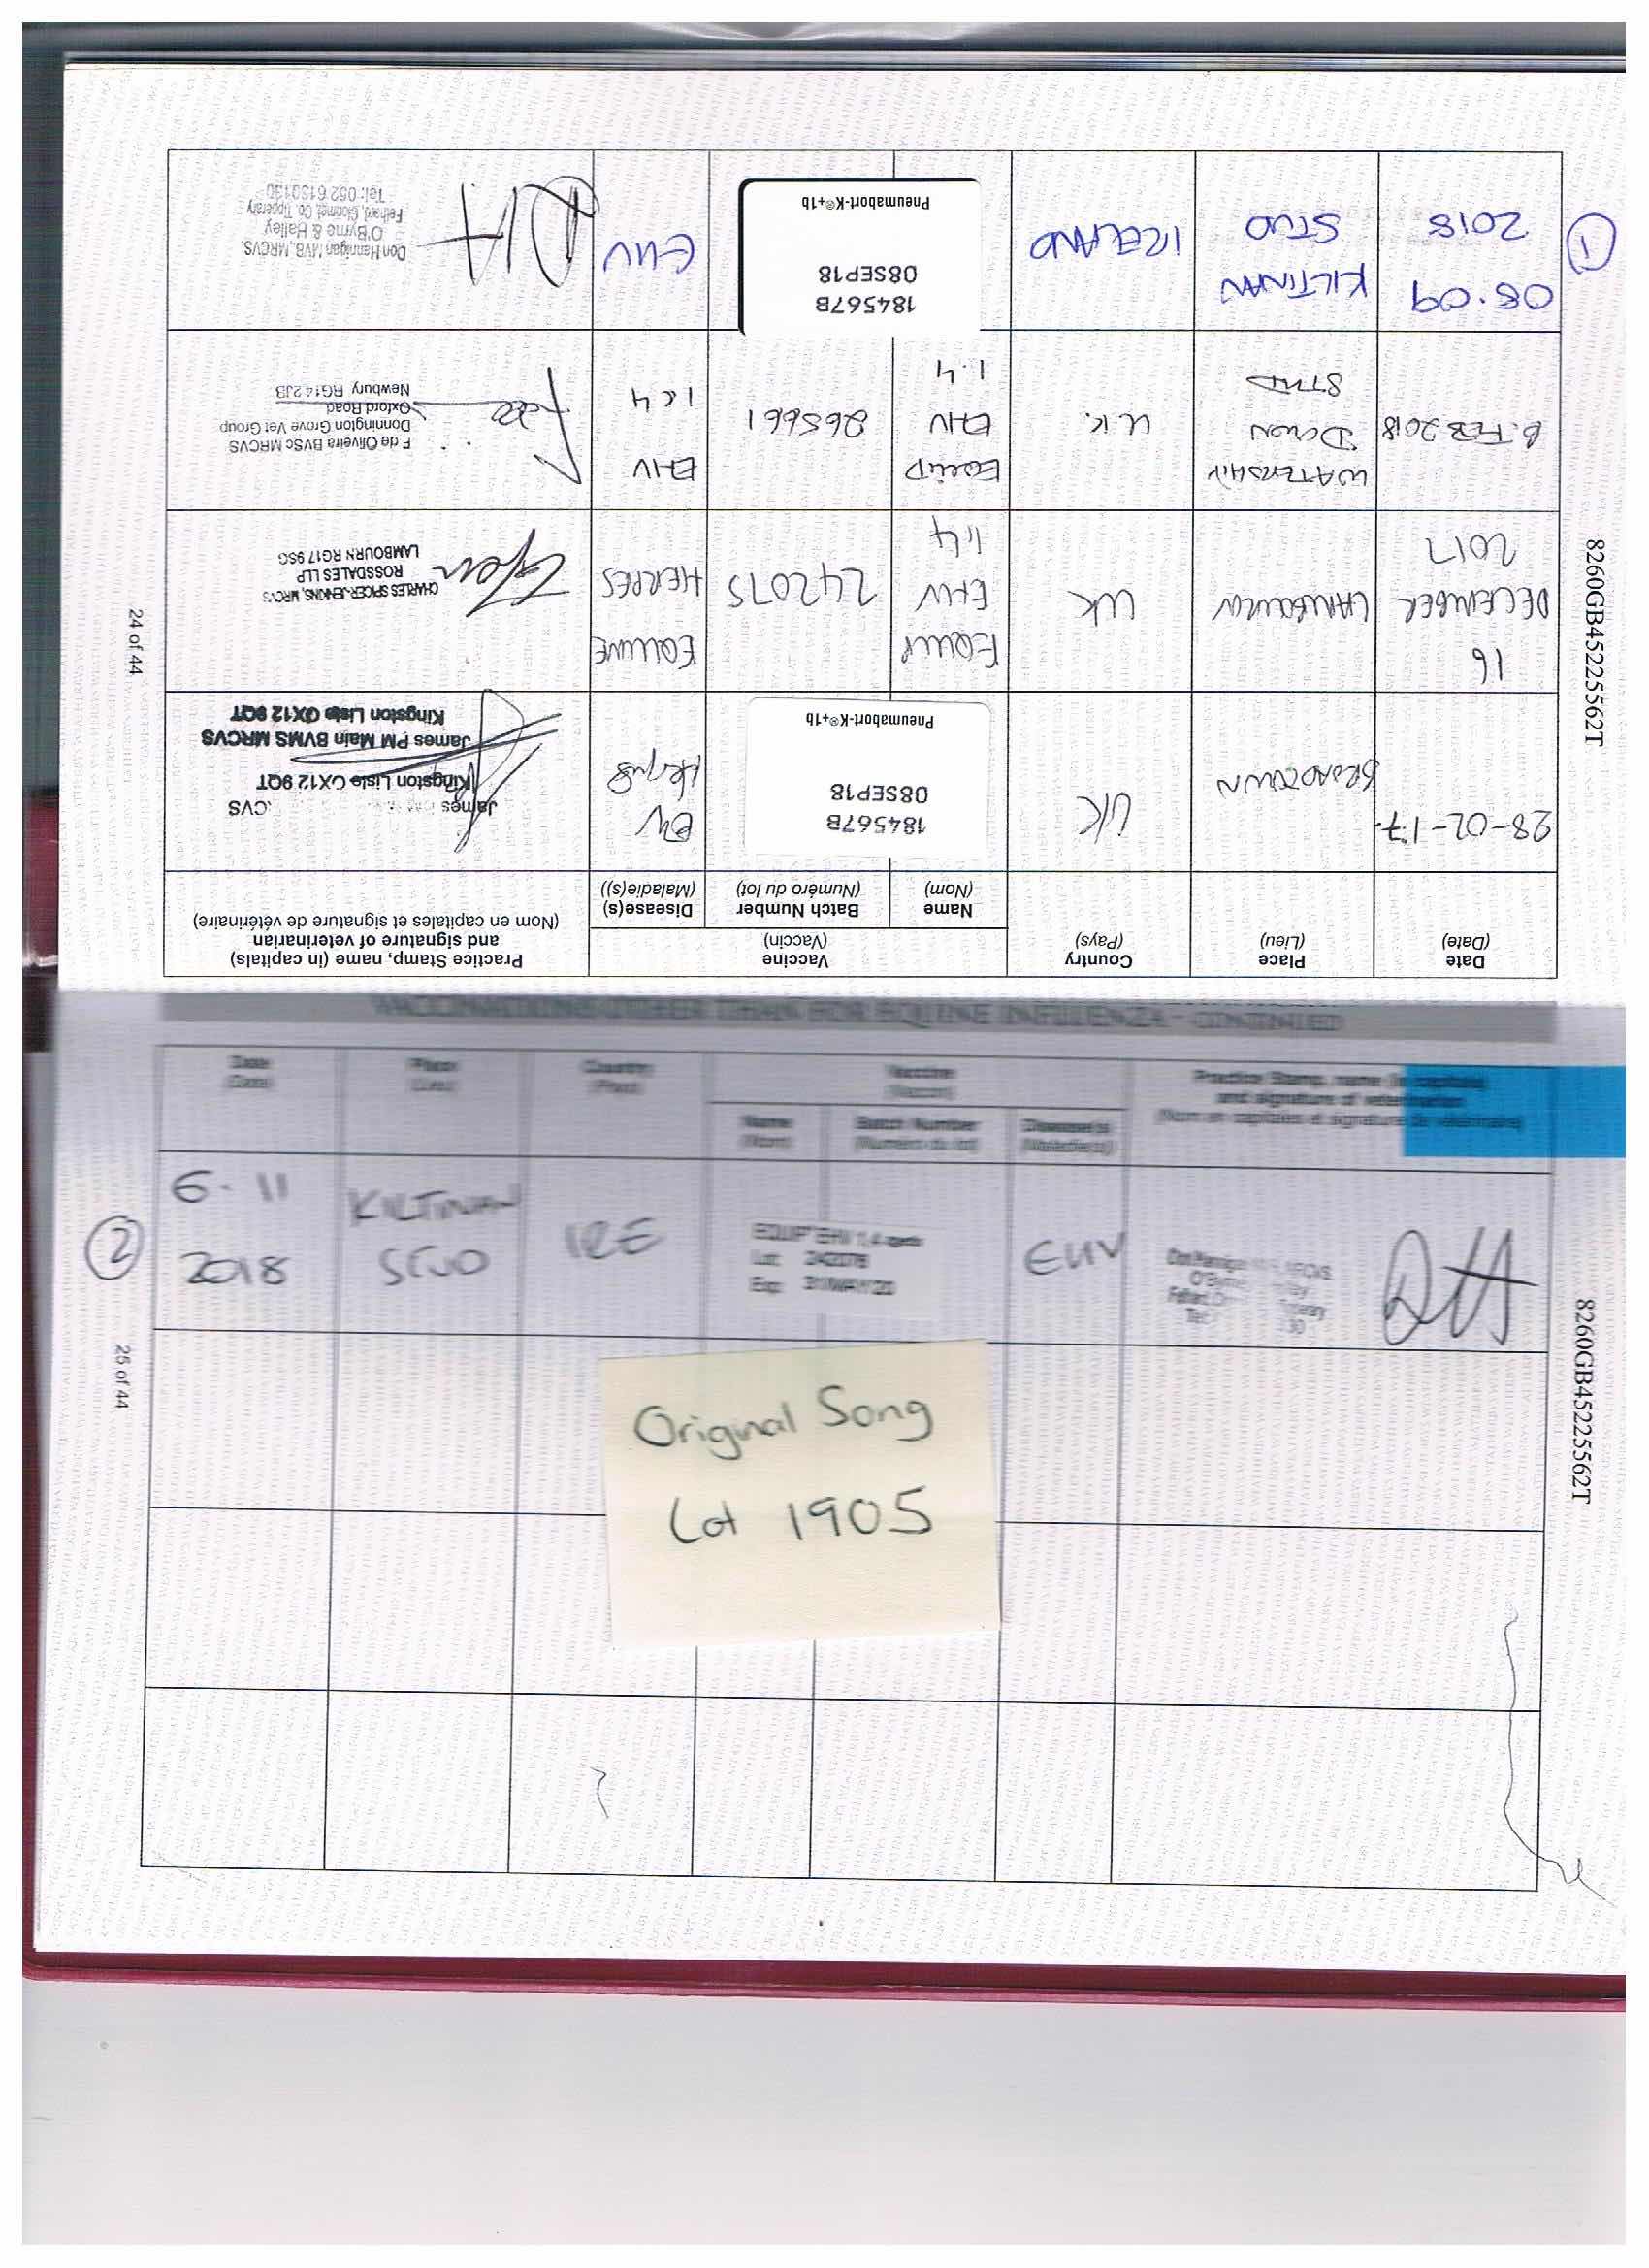 8260GB45225562T
Date
(Date)
Place
(Lieu)
Country
(Pays)
Vaccine
(Vaccin)
Name
(Nom)
Batch Number
(Numéro du lot)
Disease(s)
(Maladie(s))
Practice Stamp, name (in capitals)
and signature of veterinarian
(Nom en capitales et signature de vétérinaire)
28-02-17.
BROADTOWN
UK
184567B
08SEP18
Pneumabort-K®+1b
Herpes
James CVS
Kingston Lisle OX12 9QT
James PM Main BVMS MRCVS
Kingston Lisle OX12 9QT
16
DECEMBER
2017
LAMBOURN
UK
EQUIP
EHV
1,4
242075
EQUINE
HERPES
CHARLES SPICER-JENKINS, MRCVS
ROSSDALES LLP
LAMBOURN RG17 9SG
8. FEB 2018
WATERSHIP
DOWN
STUD
U.K.
EQUIP
EHV
1.4
265661
EHV
1 & 4
F de Oliveira BVSc MRCVS
Donnington Grove Vet Group
Oxford Road
Newbury RG14 2JB
1
08.09
2018
KILTINAN
STUD
IRELAND
184567B
08SEP18
Pneumabort-K®+1b
EHV
Don Hannigan MVB, MRCVS.
O'Byrne & Halley
Fethard, Clonmel, Co. Tipperary
Tel: 052 6130130
24 of 44
VACCINATIONS OTHER THAN FOR EQUINE INFLUENZA - CONTINUED
Date
(Date)
Place
(Lieu)
Country
(Pays)
Vaccine
(Vaccin)
Name
(Nom)
Batch Number
(Numéro du lot)
Disease(s)
(Maladie(s))
Practice Stamp, name (in capitals)
and signature of veterinarian
(Nom en capitales et signature de vétérinaire)
2
6-11
2018
KILTINAN
STUD
IRE
EQUIP EHV 1,4
Lot: 242076
Exp: 31MAY20
EHV
25 of 44
8260GB45225562T
Original Song
Lot 1905